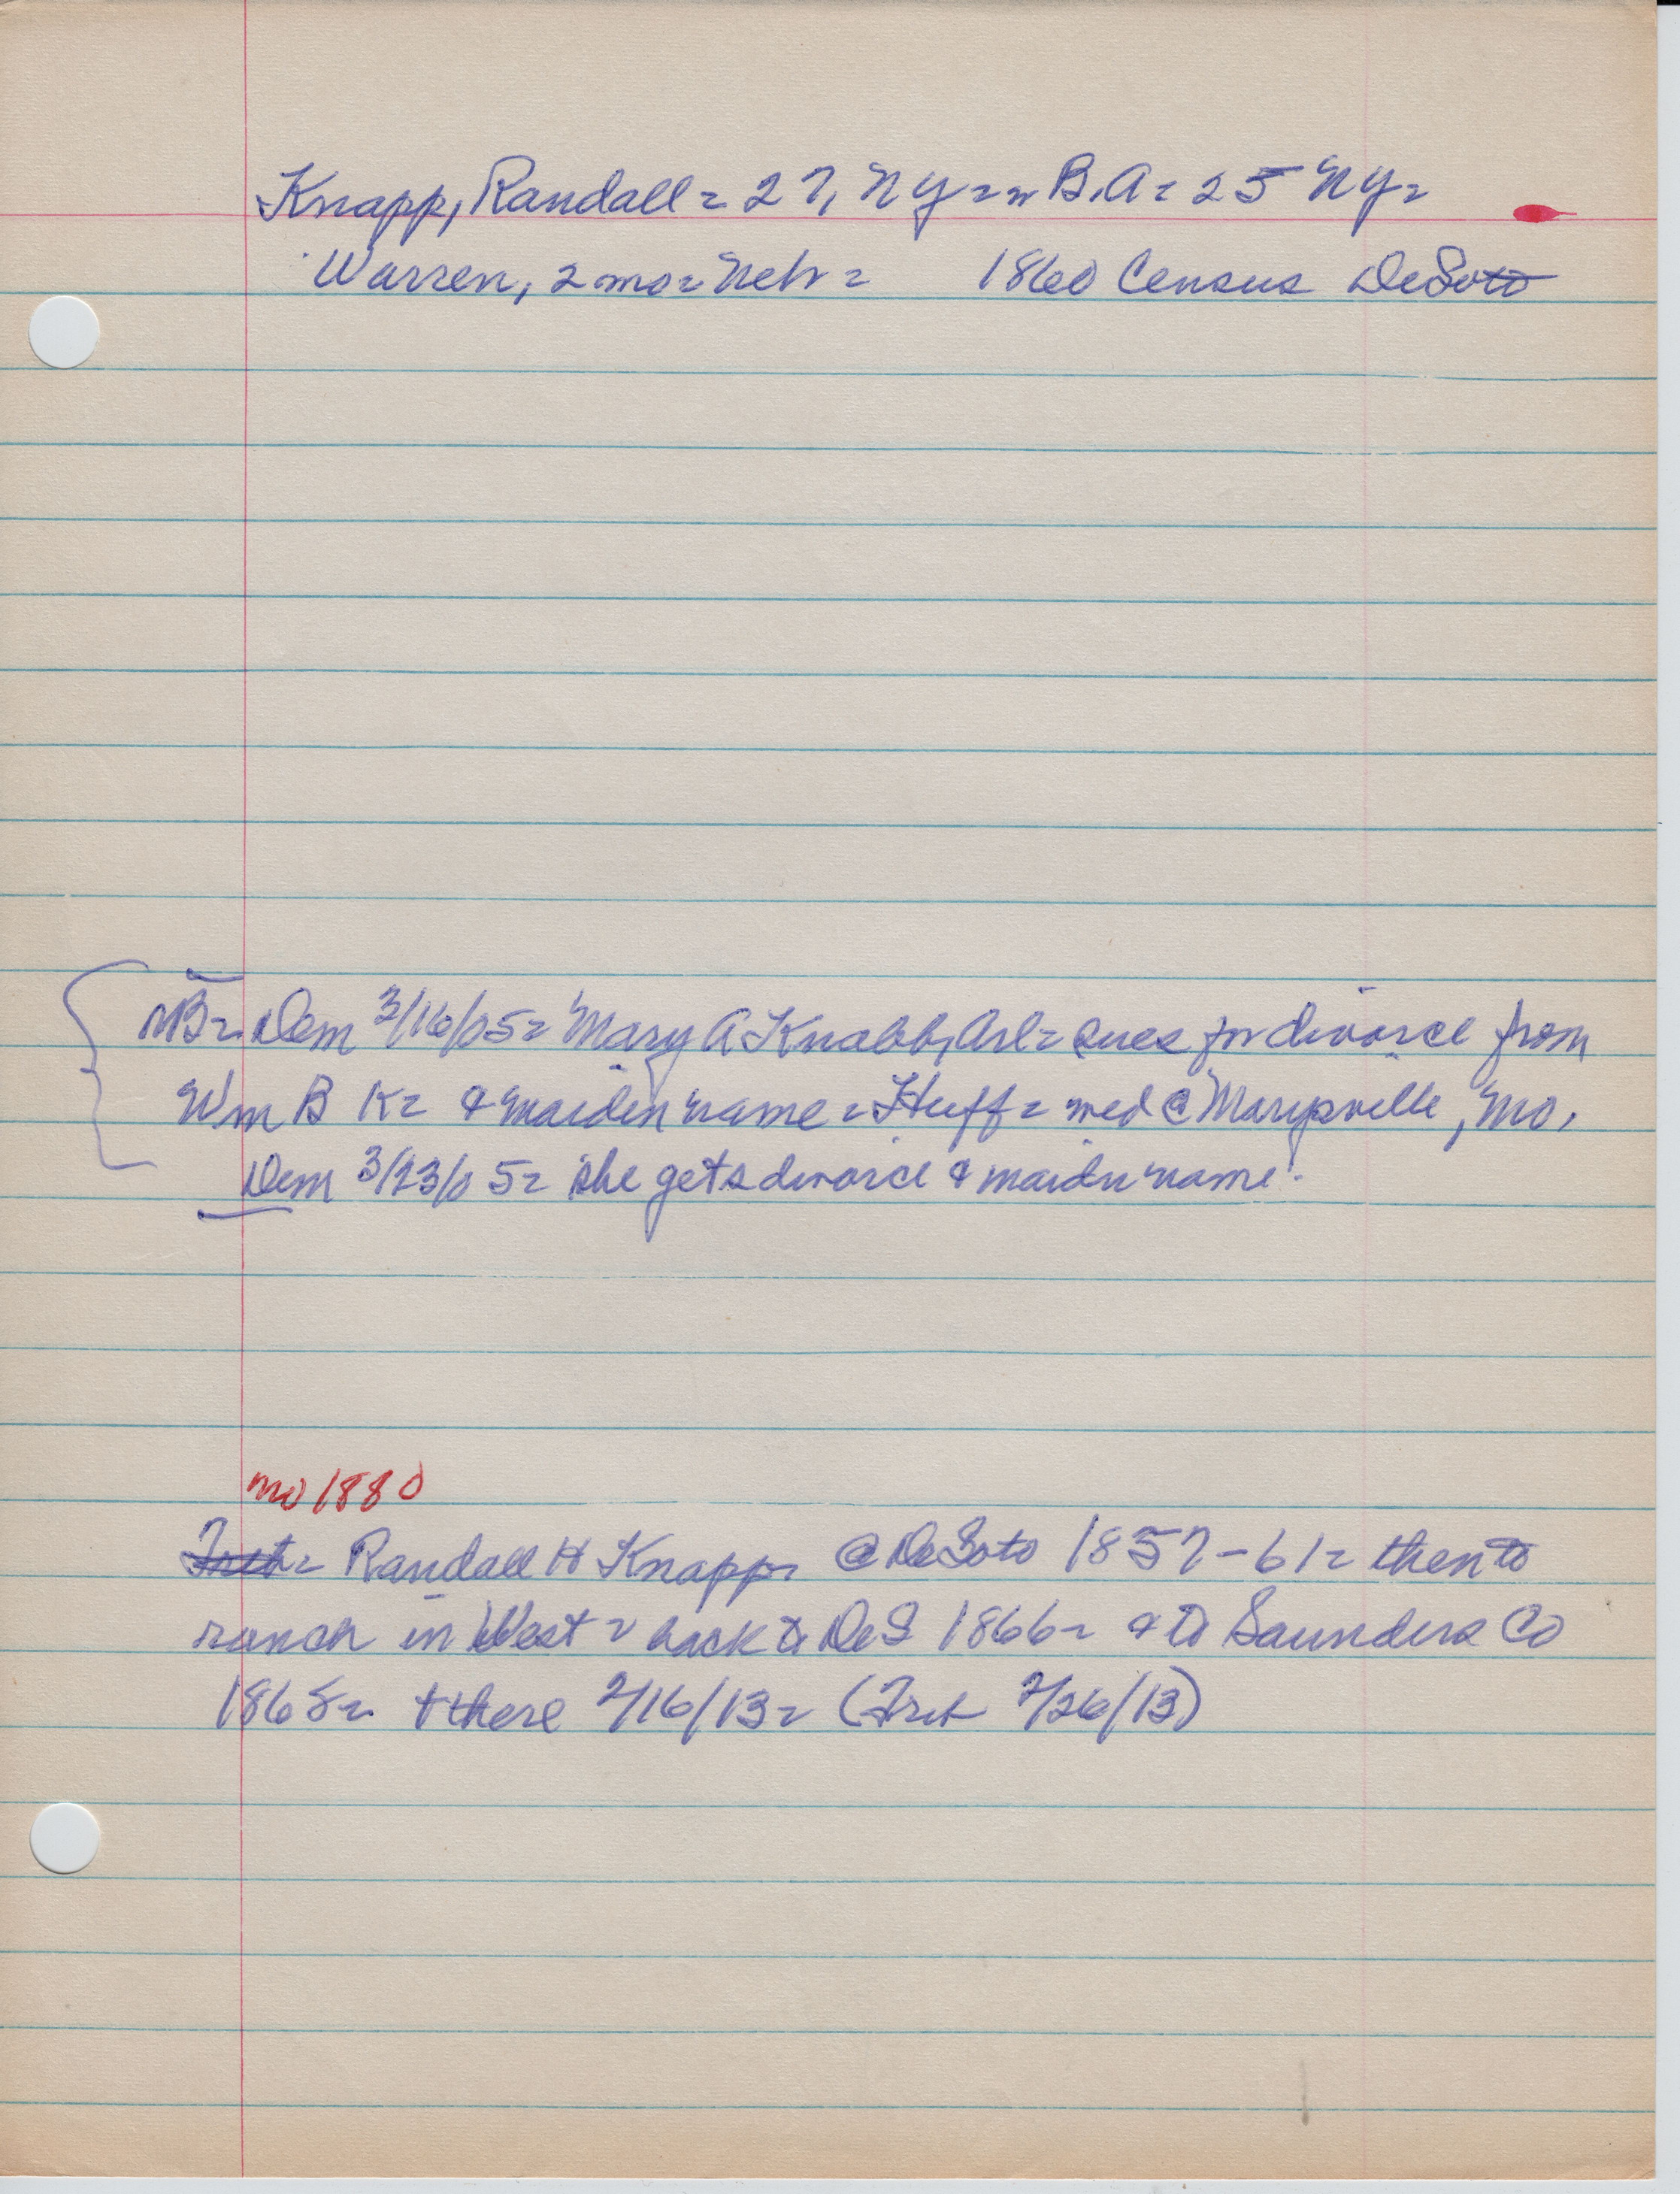 Knapp, Randall = 27, NY = w B.A = 25 NY =
Warren, 2 mo = Neb = 1860 Census DeSoto
NB = Dem 3/16/05 = Mary A Knabb, Arl = sues for divorce from
Wm B K = & maiden name = Huff = med @ Marysville, Mo,
Dem 3/23/05 = she gets divorce & maidn name.
no 1880
Randall H Knapp @ DeSoto 1857-61 = then to
ranch in West = back to DeS 1866 = & to Saunders Co
1868 = & there 2/16/13 = ( 2/26/13)